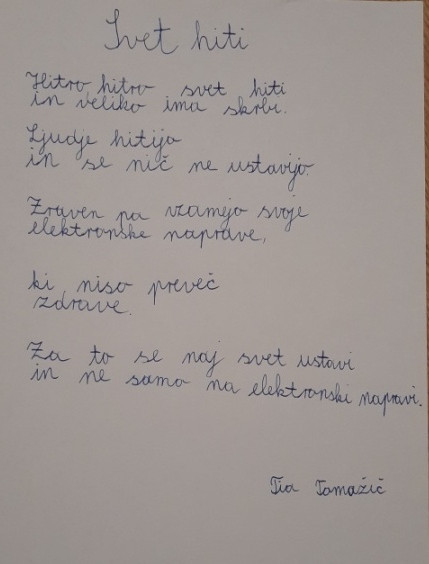 Svet hiti
Hitro, hitro svet hiti
in veliko ima skrbi.
Ljudje hitijo
in se nič ne ustavijo.
Zraven pa vzamejo svoje
elektronske naprave,
ki niso preveč
zdrave.
Za to se naj svet ustavi
in ne samo na elektronski napravi.
Tia Tomažič